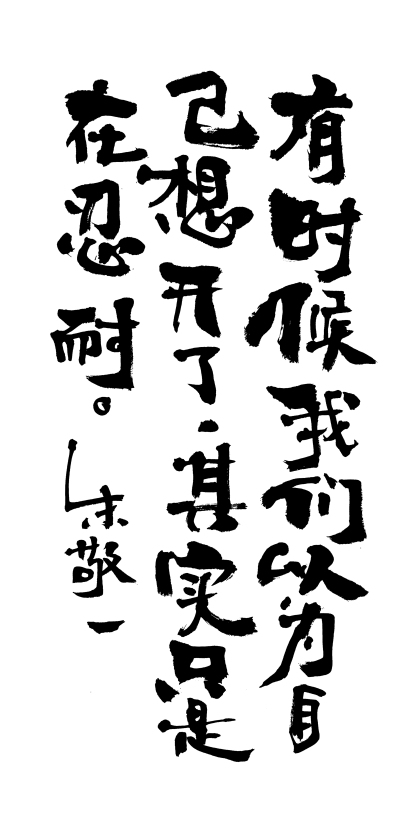 有时候我们以为自
己想开了，其实只是
在忍耐。
朱敬一